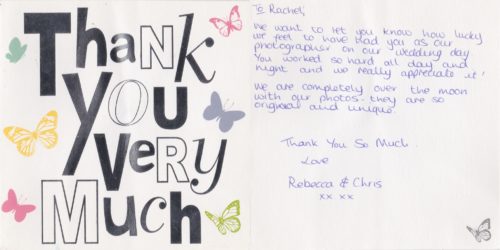 Thank
You
Very
Much
To Rachel,
We want to let you know how lucky
we feel to have had you as our
photographer on our wedding day.
You worked so hard all day and
night and we really appreciate it!
We are completely over the moon
with our photos - they are so
original and unique.
Thank You So Much.
Love
Rebecca & Chris
xx xx